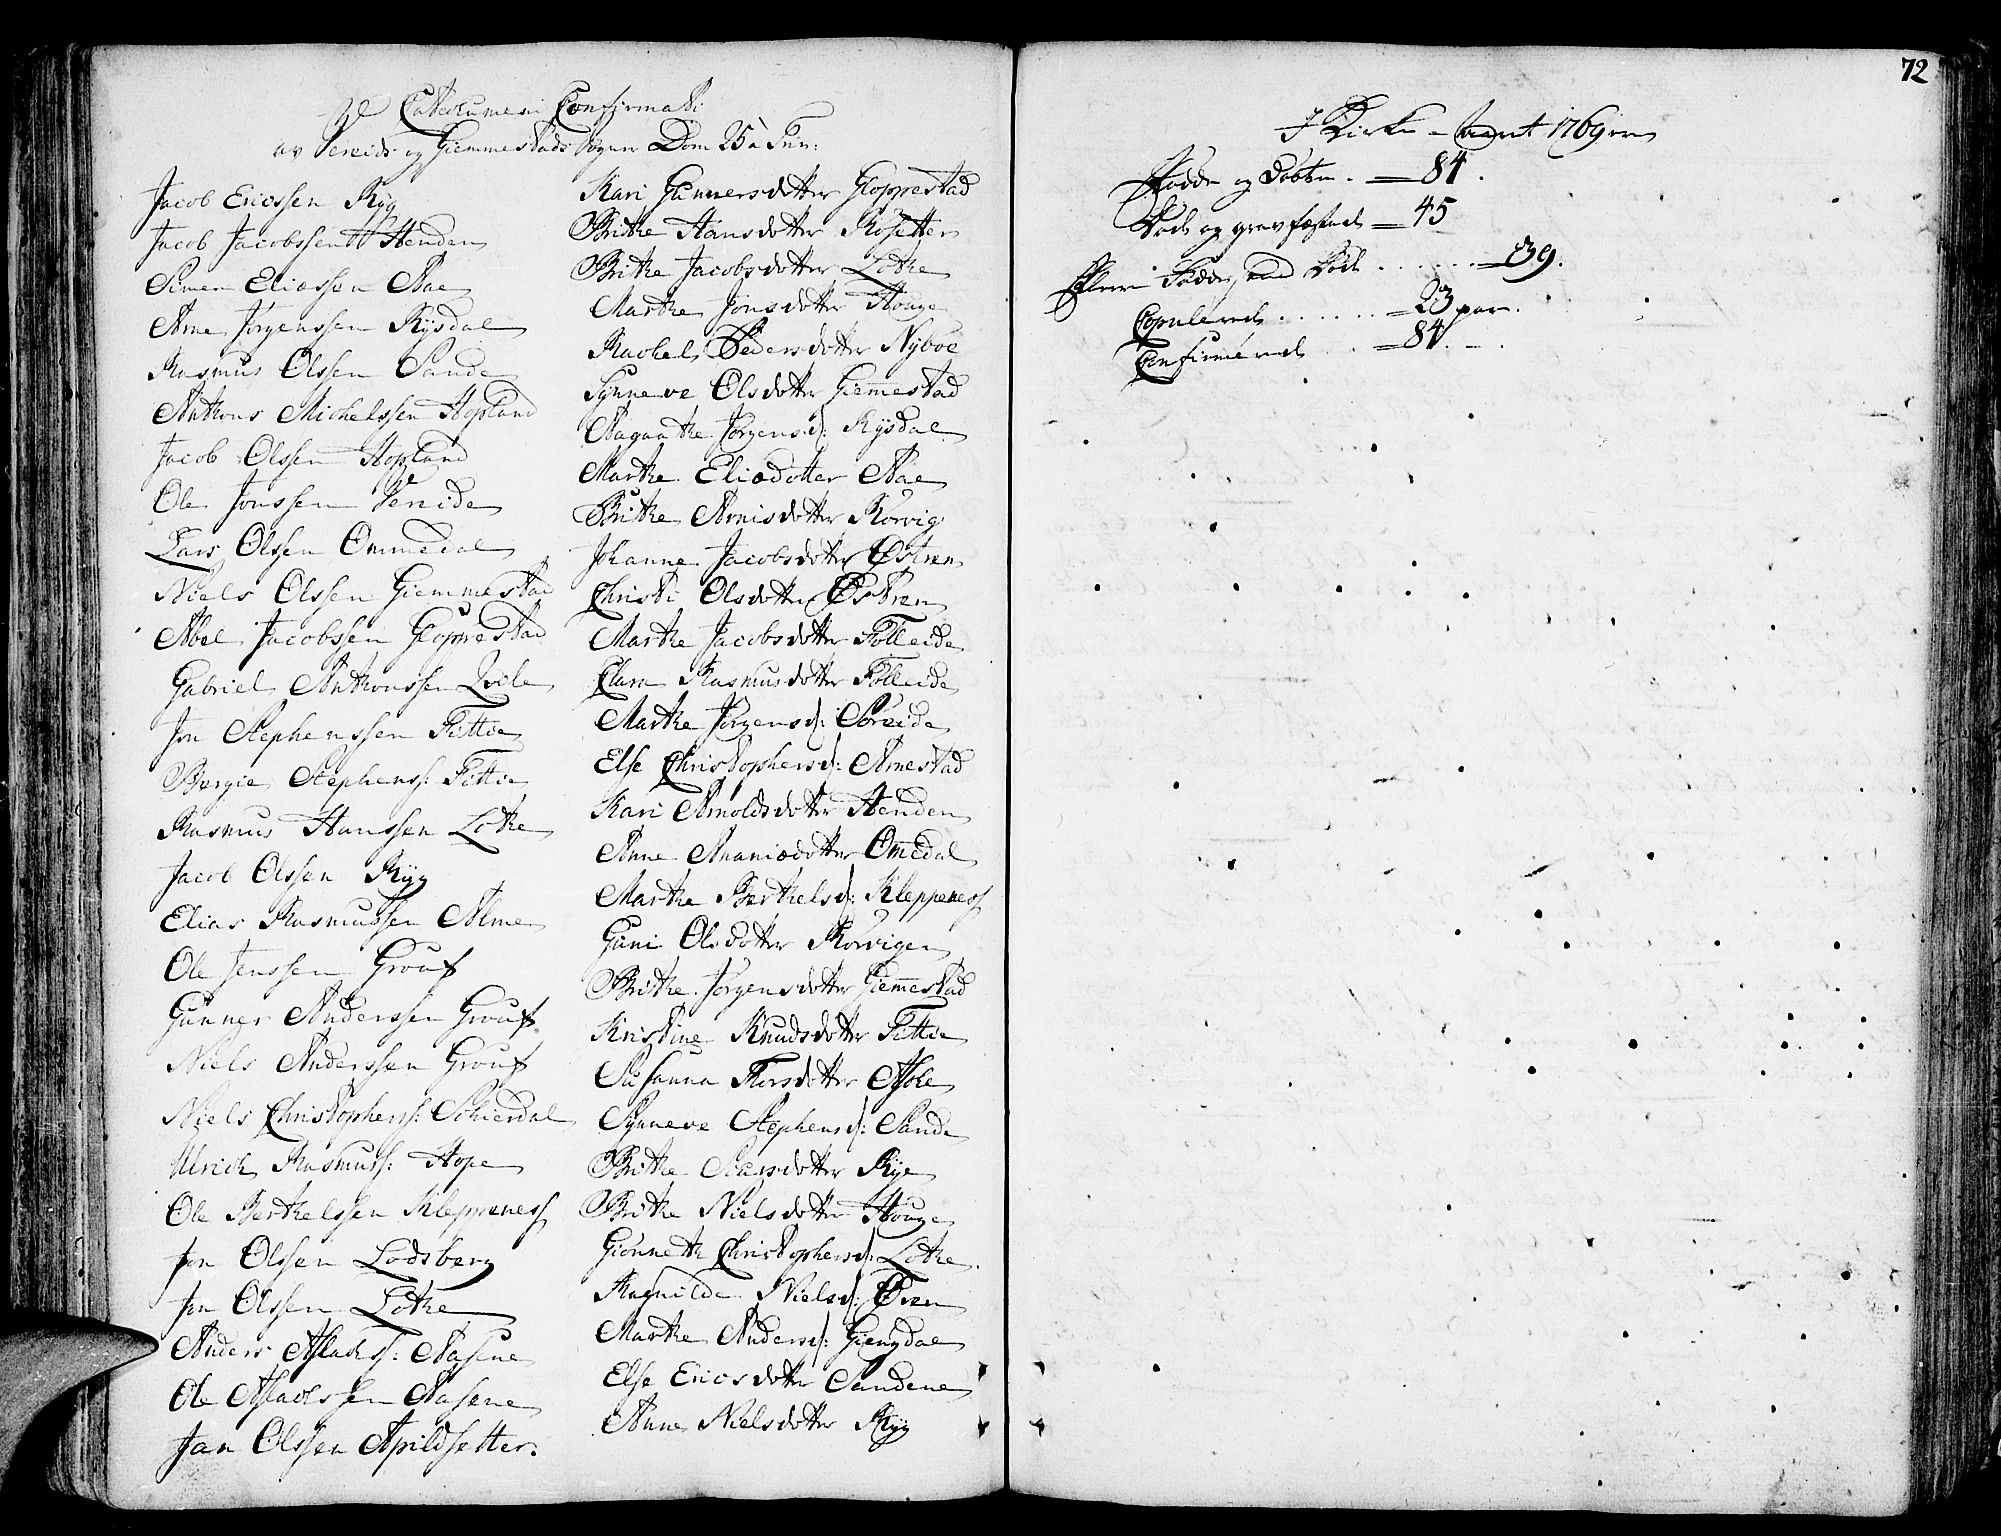 Catechumeni Confirmati
av Vereids og Giemmestads Sogner Dom 25 à Trin:
Jacob Ericssen Ryg
Jacob Jacobssen Henden
Simen Eliæssen Aae
Arne Jörgenssen Rysdal
Rasmus Olssen Sande
Anthons Michelssen Hopland
Jacob Olssen Hopland
Ole Jonssen Vereide
Lars Olssen Ommedal
Niels Olssen Giemmestad
Abel Jacobssen Gloppestad
Gabriel Anthonssen Qvile
Jon Stephenssen Fittie
Bergie Stephenss: Fittie
Rasmus Hanssen Lothe
Jacob Olssen Ryg
Elias Rasmussen Alme
Ole Jenssen Grouf
Gunner Anderssen Grouf
Niels Anderssen Grouf
Niels Christopherss: Schierdal
Ulrich Rasmuss: Hope
Ole Berthelssen Kleppeness
Jon Olssen Lodsberg
Jon Olssen Lothe
Anders Aslachs: Aasene
Ole Aslachssen Aasene
Jan Olssen Apildsetter.
Kari Gunnersdotter Gloppestad
Brithe Hansdotter Rosetter
Brithe Jacobsdotter Lothe
Marthe Jonsdotter Houge
Rachel Pedersdotter Nyboe
Synneve Olsdotter Giemestad
Aagaathe Jörgensd: Rysdal
Marthe Eliædotter Aae
Brithe Arnisdotter Rorvig
Johanne Jacobsdotter Østren
Christi Olsdotter Østren
Marthe Jacobsdotter Folleide
Clara Rasmusdotter Folleide
Marthe Jörgensd: Soreide
Else Christophersd: Arnestad
Kari Arnoldsdotter Henden
Anne Ananiædotter Omedal
Marthe Berthelsd: Kleppeness
Guni Olsdotter Rorvigen
Brithe Jörgensdotter Giemestad
Kristine Knudsdotter Fittie
Susanna Thorsdotter Aske
Synneve Stephensd: Sande
Brithe Siursdotter Rye
Brithe Nielsdotter Houge
Giönneth Christophersd: Lothe
Ragnilde Nielsd: Øren
Marthe Andersd: Giengdal
Else Ericsdotter Sandene
Anne Nielsdotter Ryg
72
I Kirke-Aaret 1769 ere
Födde og Döbte . = 84.
Döde og gravfæstede = 45
Flere Födde, end Död . . . . . . = 39.
Copulerede . . . . . . = 23 par.
Confirmerede . . = 84. -